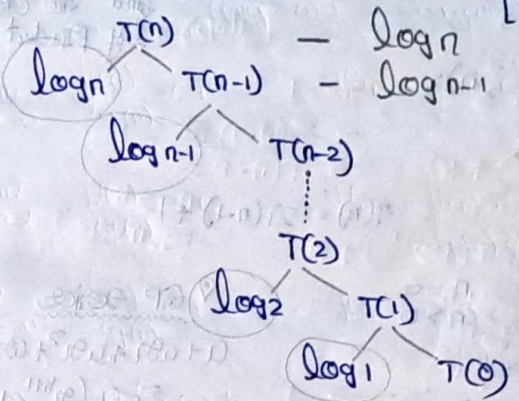 T(n) — log n
log n T(n-1) - log n-1
log n-1 T(n-2)
T(2)
log 2 T(1)
log 1 T(0)